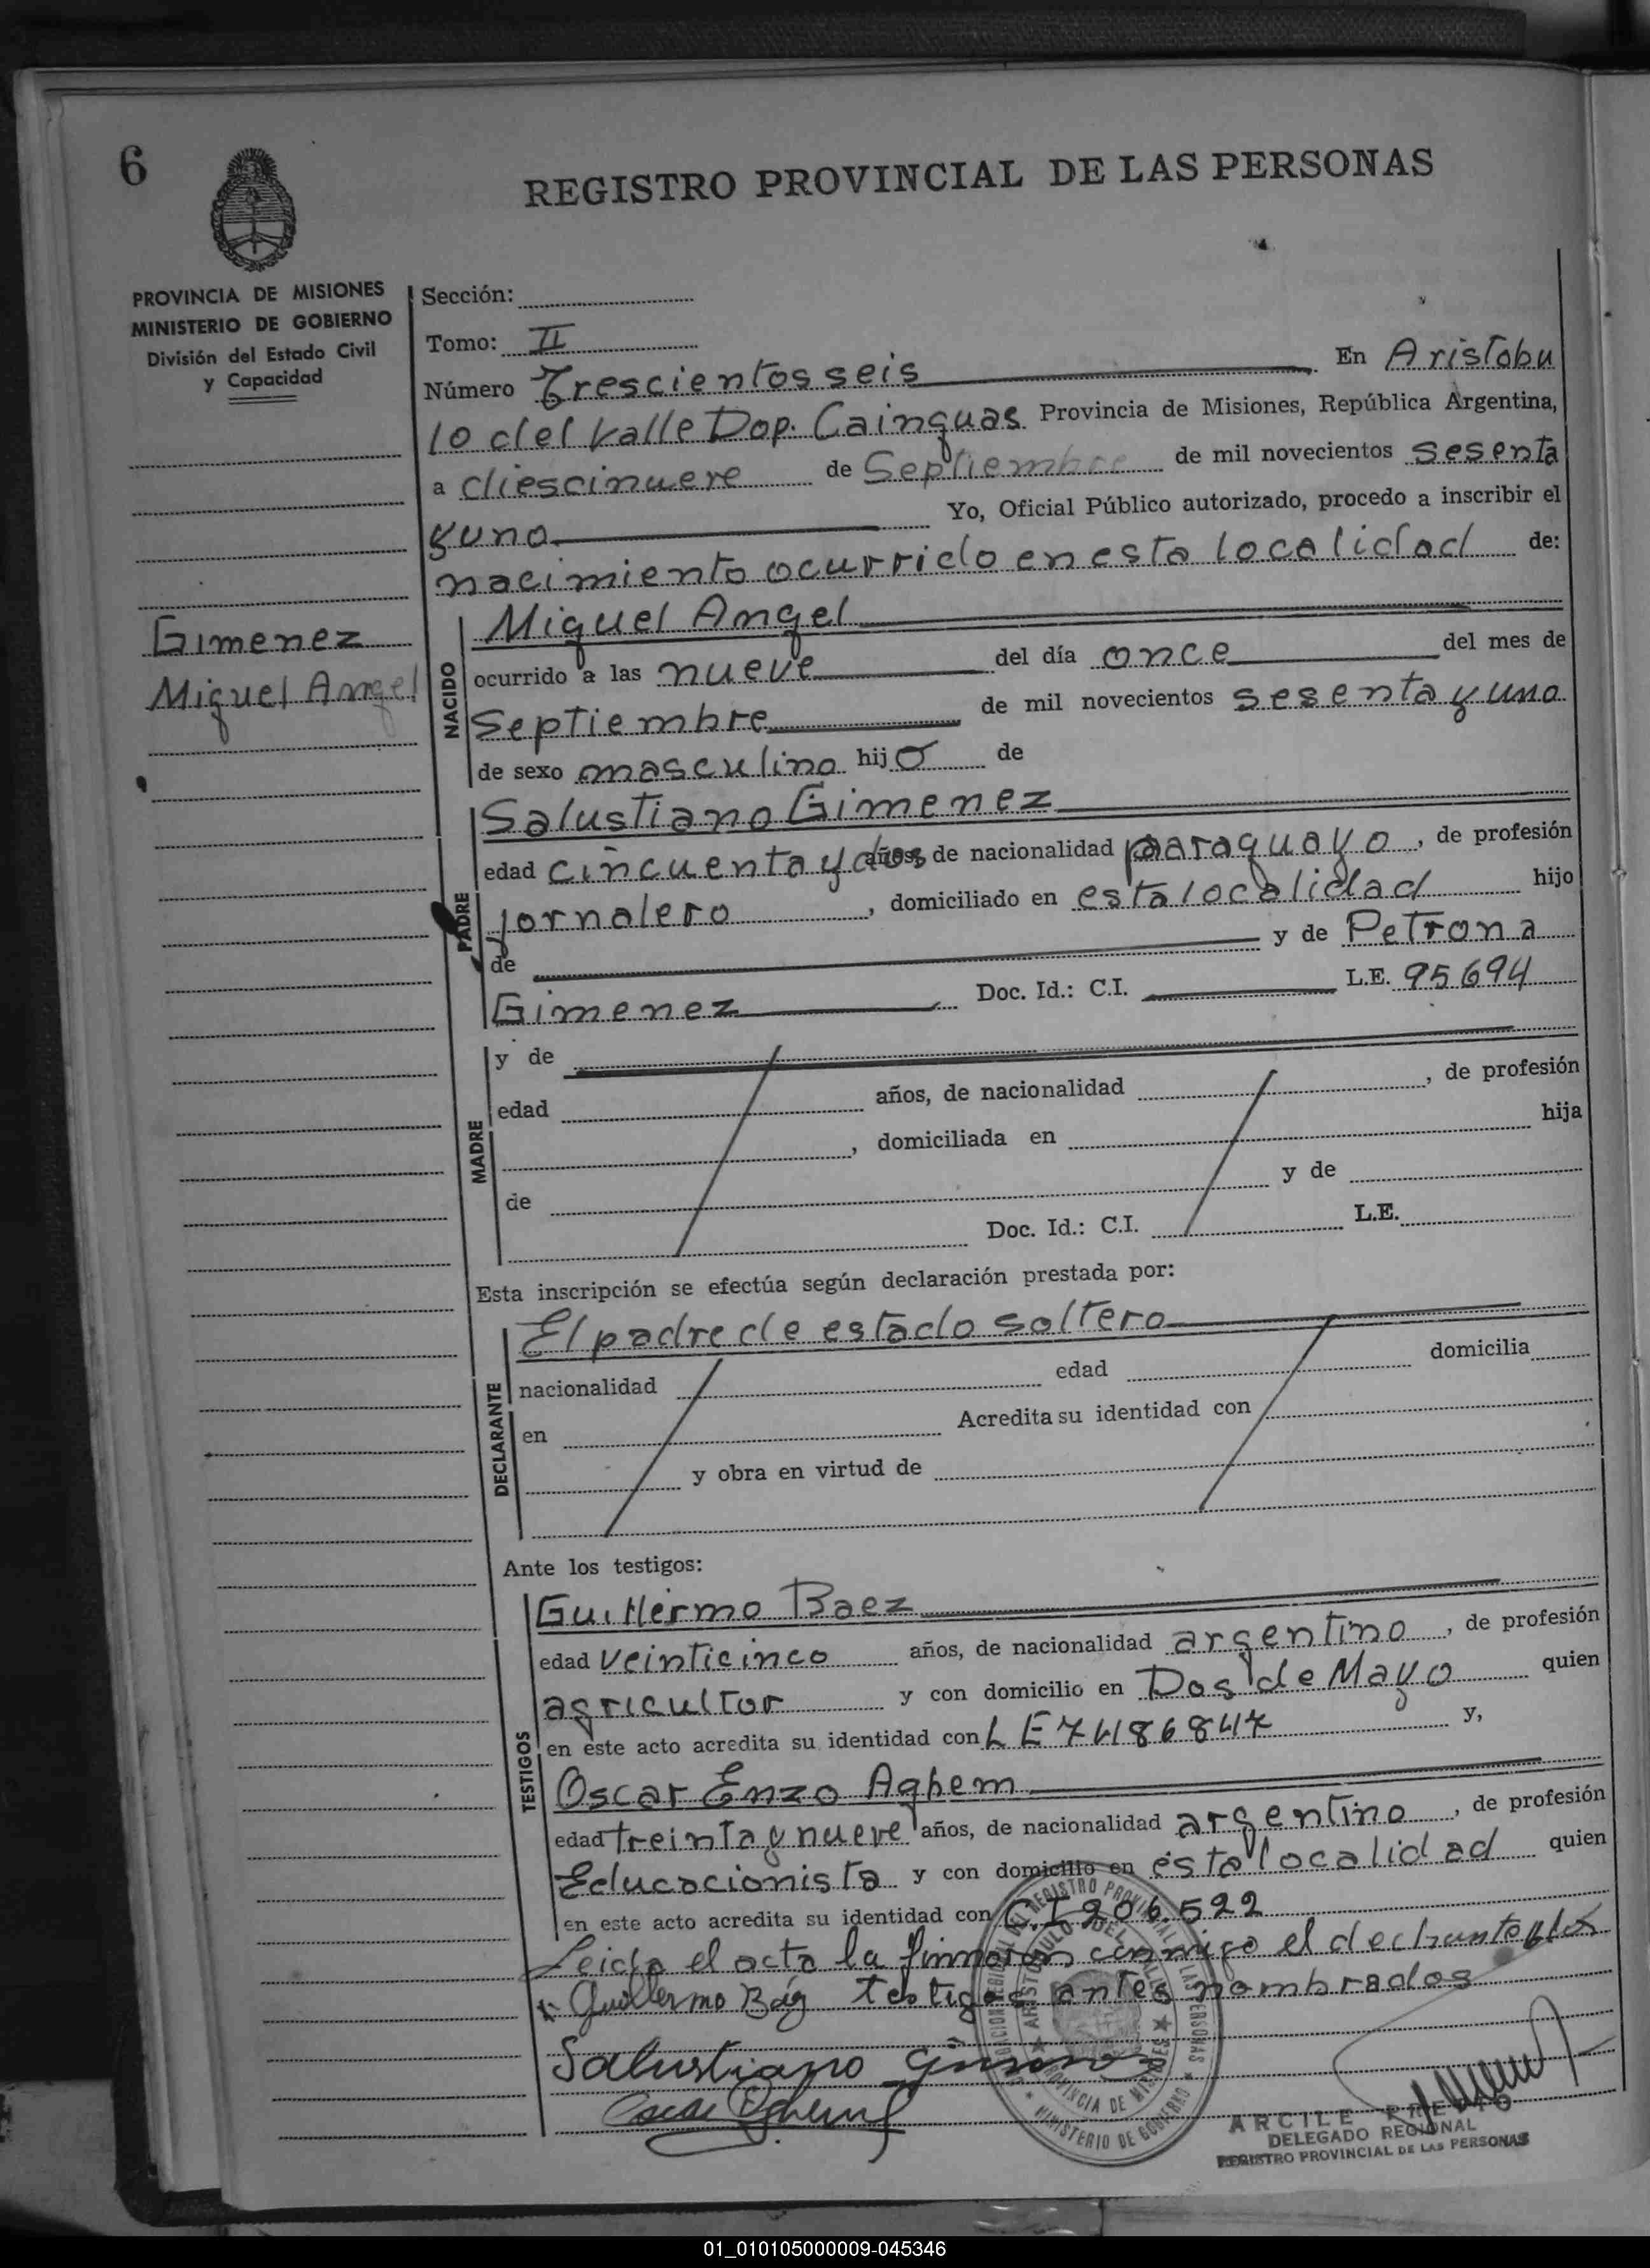 6
REGISTRO PROVINCIAL DE LAS PERSONAS
PROVINCIA DE MISIONES
MINISTERIO DE GOBIERNO
División del Estado Civil
y Capacidad
Sección:
Tomo: II
Número Trescientos seis En Aristobu
lo del Valle Dop. Cainguas Provincia de Misiones, República Argentina,
a diescinueve de Septiembre de mil novecientos sesenta
y uno Yo, Oficial Público autorizado, procedo a inscribir el
nacimiento ocurrido en esta localidad de:
Gimenez
Miguel Angel
NACIDO
Miguel Angel
ocurrido a las nueve del día once del mes de
Septiembre de mil novecientos sesenta y uno
de sexo masculino hijo de
PADRE
Salustiano Gimenez
edad cincuenta y dos años, de nacionalidad paraguayo, de profesión
jornalero, domiciliado en esta localidad hijo
de y de Petrona
Gimenez Doc. Id.: C.I. L.E. 95694
MADRE
y de
edad años, de nacionalidad , de profesión
, domiciliada en hija
de y de
Doc. Id.: C.I. L.E.
Esta inscripción se efectúa según declaración prestada por:
DECLARANTE
El padre de estado soltero
nacionalidad edad domicilia
en Acredita su identidad con
y obra en virtud de
Ante los testigos:
TESTIGOS
Guillermo Baez
edad veinticinco años, de nacionalidad argentino, de profesión
agricultor y con domicilio en Dos de Mayo quien
en este acto acredita su identidad con LE 7486847 y,
Oscar Enzo Aghem
edad treinta y nueve años, de nacionalidad argentino, de profesión
Educacionista y con domicilio en esta localidad quien
en este acto acredita su identidad con C.I 206.522
Leida el acta la firmaron conmigo el declarante y los
Guillermo Báez testigos antes nombrados
Salustiano Gimenez
Oscar E Aghem
ARCILE PRIETO
DELEGADO REGIONAL
REGISTRO PROVINCIAL DE LAS PERSONAS
01_010105000009-045346